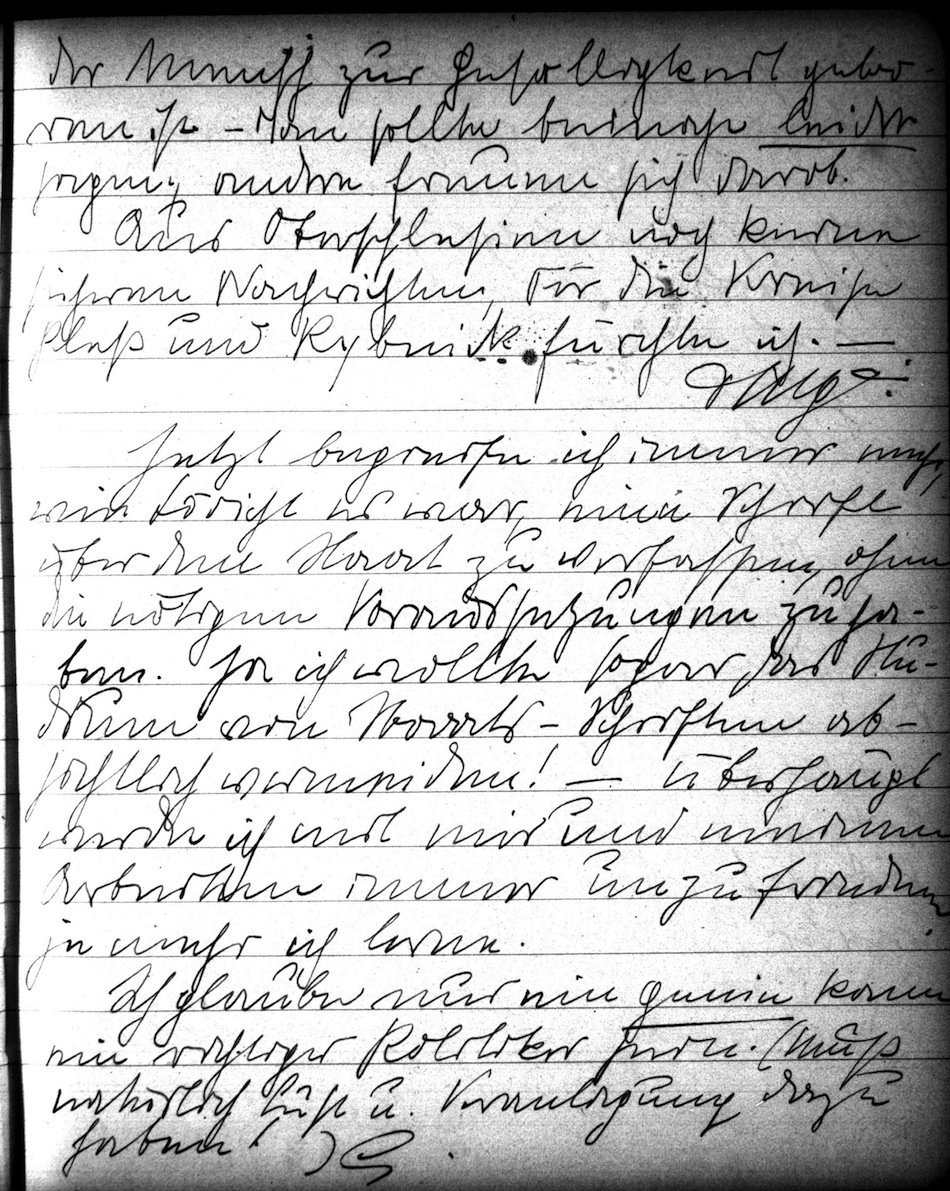 der Mensch zur Geselligkeit gebo-
ren ist – Man sollte beinahe leider
sagen, andere freuen sich darob.
Aus Oberschlesien noch keine
sicheren Nachrichten, für die Kreise
Pleß und Rybnik fürchte ich. —
Jetzt begreife ich immer mehr,
wie töricht es war, eine Schrift
über den Staat zu verfassen, ohne
die nötigen Voraussetzungen zu ha-
ben. Ja ich wollte sogar das Stu-
dium von Staats-Schriften ab-
sichtlich vermeiden! — Überhaupt
werde ich mit mir und meinen
Arbeiten immer unzufriedener,
je mehr ich lerne.
Ich glaube nur ein Genie kann
ein richtiger Politiker sein. (Muß
natürlich Lust u. Veranlagung dazu
haben!)